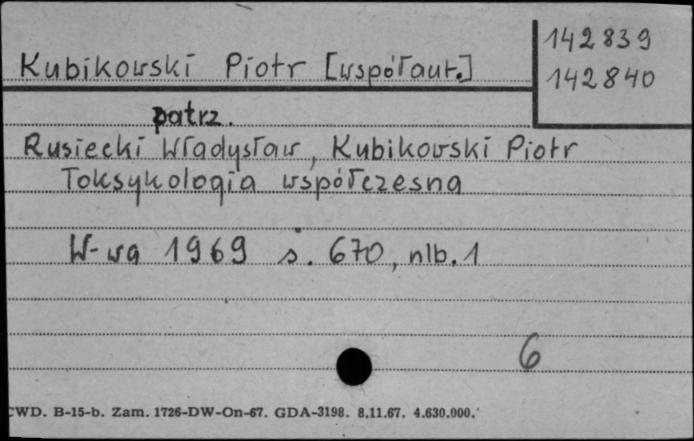 Kubikowski Piotr [współaut.]
142839
142840
patrz.
Rusiecki Władysław, Kubikowski Piotr
Toksykologia współczesna
W-wa 1969 s. 670, nlb. 1
6
CWD. B-15-b. Zam. 1726-DW-On-67. GDA-3198. 8.11.67. 4.630.000.